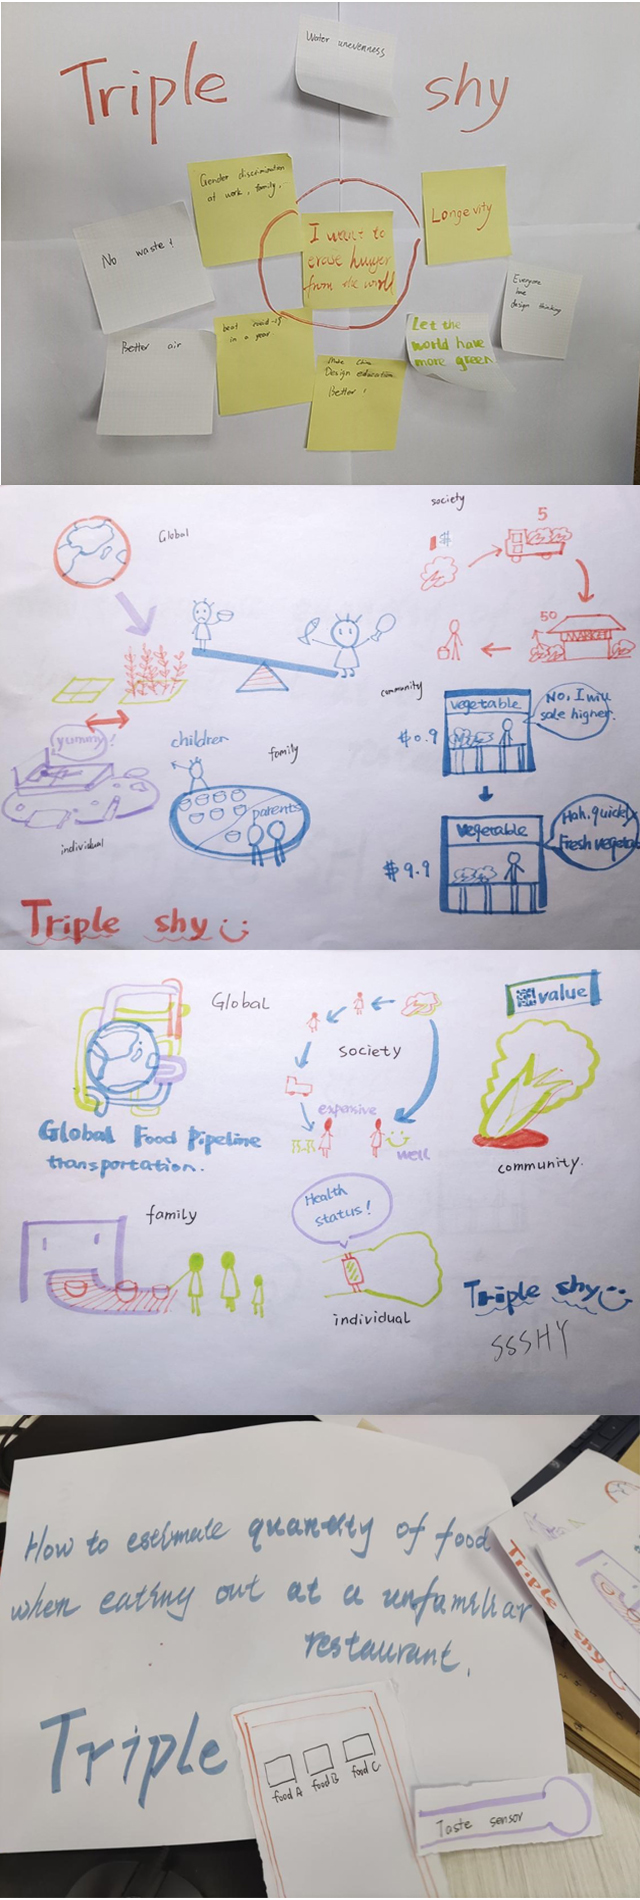 Water unevenness
Triple shy
Gender discrimination
at work, family.
Longevity
No waste!
I want to
erase hunger
from the world
Everyone
love
design thinking
Better air
beat covid-19
in a year.
Let the
world have
more green
Make China
Design education
Better!
society
Global
5
50
MARKET
community
vegetable
No, I will
sale higher.
$0.9
yummy!
children
family
parents
individual
Vegetable
Hah, quickly
Fresh vegeta
$9.9
Triple shy
Global
value
society
Global Food Pipeline
transportation.
expensive
well
community.
family
Health
status!
individual
Triple shy
SSSHY
How to estimate quantity of food
when eating out at a unfamiliar
restaurant.
Triple shy
Triple
food A food B food C
Taste sensor